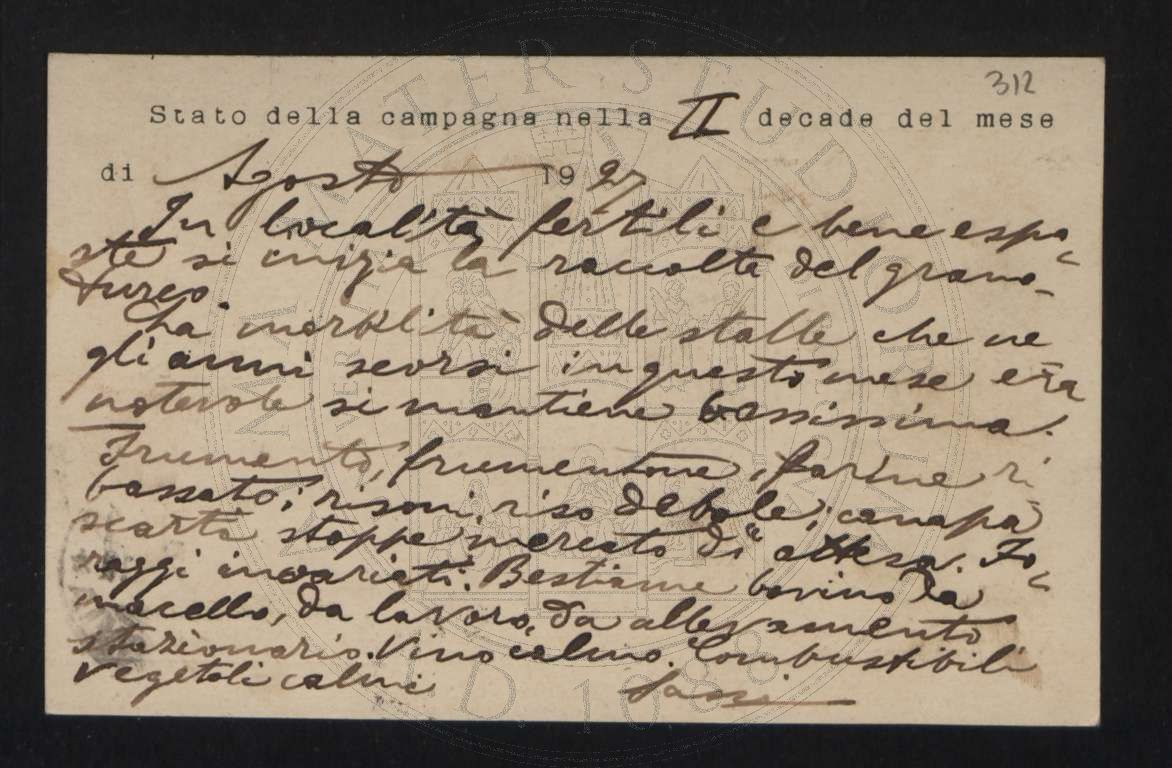 312
Stato della campagna nella II decade del mese
di Agosto 1927
In località fertili e bene espo-
ste si inizia la raccolta del grano-
turco.
La morbilità delle stalle che ne
gli anni scorsi in questo mese era
notevole si mantiene bassissima.
Frumento, frumentone, farine ri
bassato; risoni, riso debole; canapa
scarti stoppe mercato di "attesa. Fo-
raggi invariati. Bestiame bovino da
macello, da lavoro, da allevamento
stazionario. Vino calmo. Combustibili
vegetali calmi
Sassi
ALMA MATER STUDIORUM
A.D. 1088